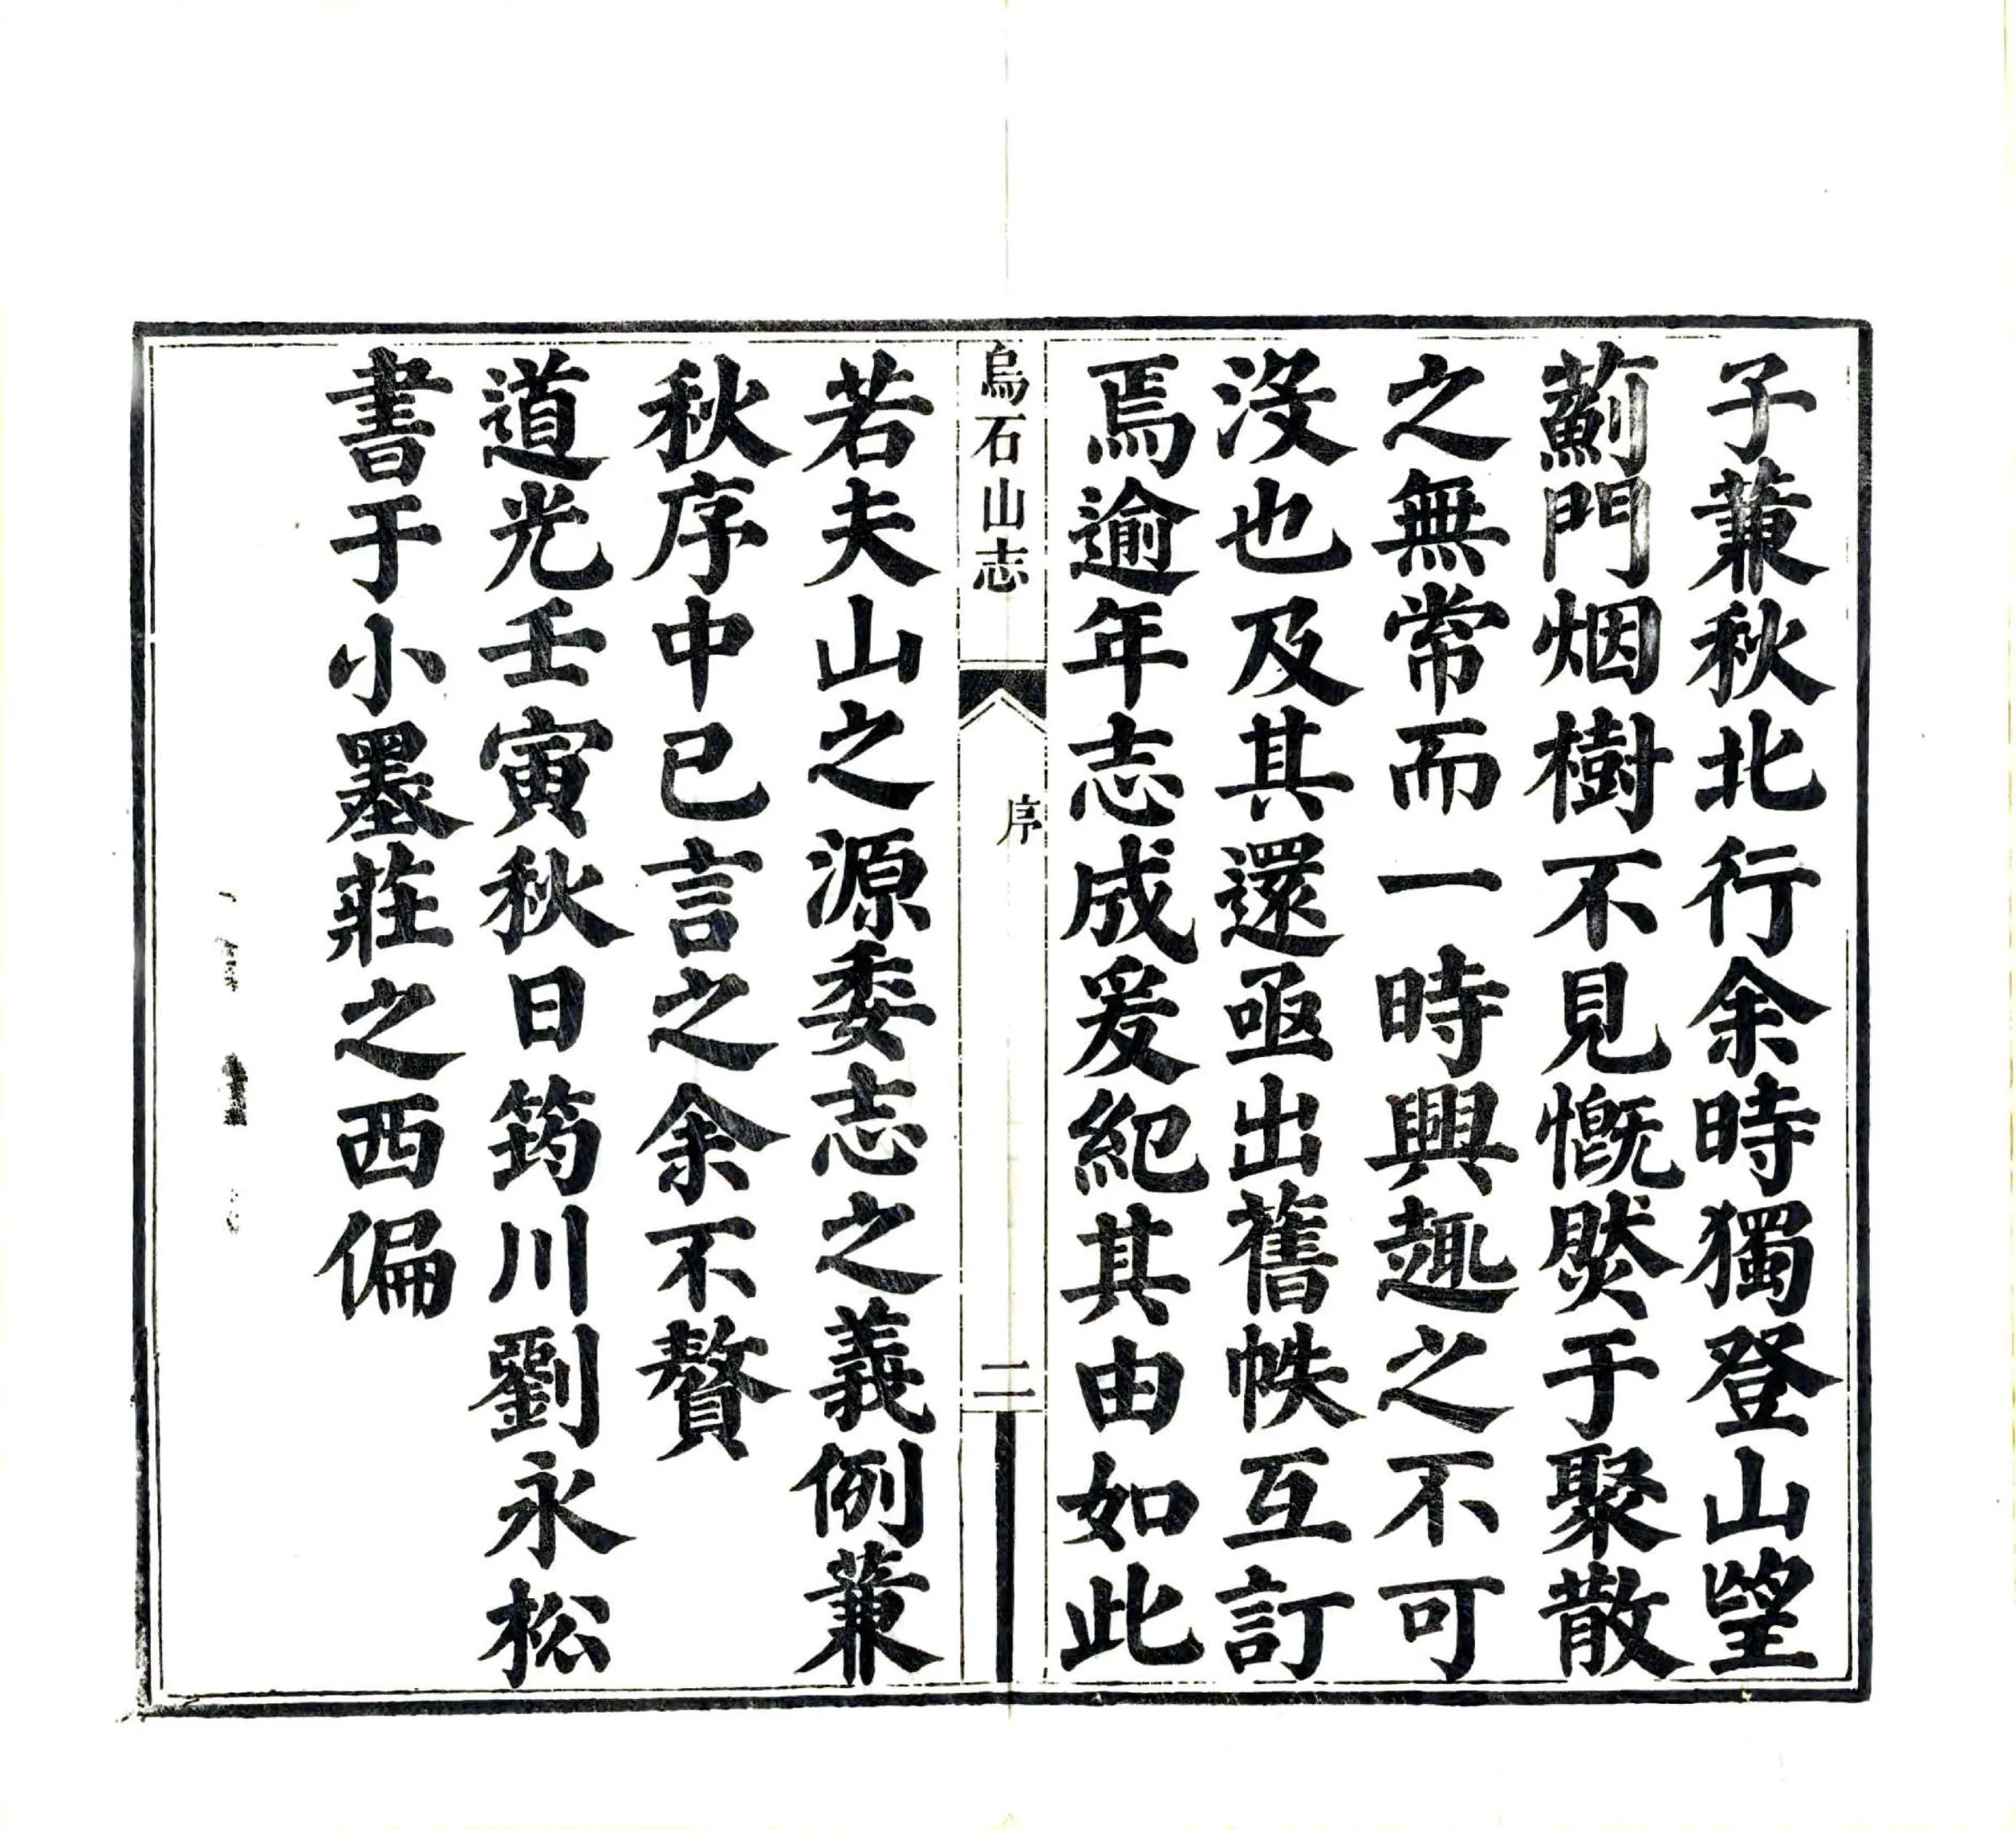 子蒹秋北行余時獨登山望
薊門烟樹不見慨然于聚散
之無常而一時興趣之不可
没也及其還亟出舊帙互訂
焉逾年志成爰紀其由如此
烏石山志
序
二
若夫山之源委志之義例蒹
秋序中已言之余不贅
道光壬寅秋日筠川劉永松
書于小墨莊之西偏